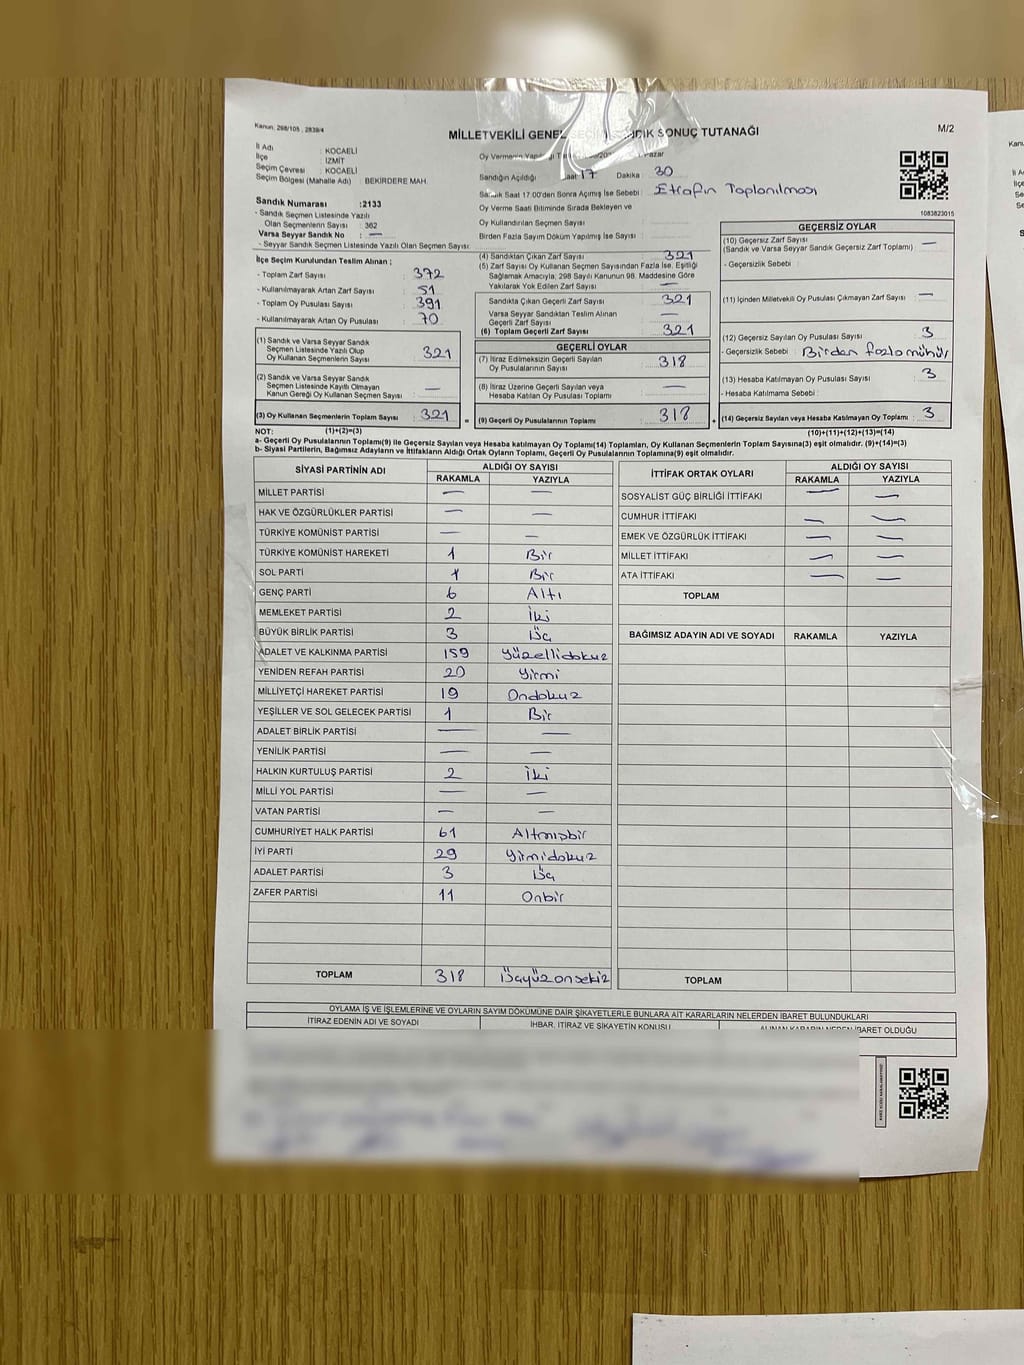 Kanun: 298/105 , 2839/4
MİLLETVEKİLİ GENEL SEÇİMİ SANDIK SONUÇ TUTANAĞI
M/2
İl Adı : KOCAELİ
İlçe : İZMİT
Seçim Çevresi : KOCAELİ
Seçim Bölgesi (Mahalle Adı) : BEKİRDERE MAH.
Sandık Numarası :2133
- Sandık Seçmen Listesinde Yazılı
Olan Seçmenlerin Sayısı : 362
Varsa Seyyar Sandık No : —
- Seyyar Sandık Seçmen Listesinde Yazılı Olan Seçmen Sayısı
Oy Vermenin Pazar
Sandığın Açıldığı Saat 17 Dakika : 30
Sandık Saat 17.00'den Sonra Açılmış İse Sebebi : Etrafın Toplanılması
Oy Verme Saati Bitiminde Sırada Bekleyen ve
Oy Kullandırılan Seçmen Sayısı
Birden Fazla Sayım Döküm Yapılmış İse Sayısı
1083823015
İlçe Seçim Kurulundan Teslim Alınan ;
- Toplam Zarf Sayısı : 372
- Kullanılmayarak Artan Zarf Sayısı : 51
- Toplam Oy Pusulası Sayısı : 391
- Kullanılmayarak Artan Oy Pusulası : 70
(1) Sandık ve Varsa Seyyar Sandık
Seçmen Listesinde Yazılı Olup
Oy Kullanan Seçmenlerin Sayısı 321
(2) Sandık ve Varsa Seyyar Sandık
Seçmen Listesinde Kayıtlı Olmayan
Kanun Gereği Oy Kullanan Seçmen Sayısı —
(3) Oy Kullanan Seçmenlerin Toplam Sayısı 321
(4) Sandıktan Çıkan Zarf Sayısı : 321
(5) Zarf Sayısı Oy Kullanan Seçmen Sayısından Fazla İse, Eşitliği
Sağlamak Amacıyla; 298 Sayılı Kanunun 98. Maddesine Göre
Yakılarak Yok Edilen Zarf Sayısı —
Sandıkta Çıkan Geçerli Zarf Sayısı : 321
Varsa Seyyar Sandıktan Teslim Alınan
Geçerli Zarf Sayısı —
(6) Toplam Geçerli Zarf Sayısı : 321
GEÇERLİ OYLAR
(7) İtiraz Edilmeksizin Geçerli Sayılan
Oy Pusulalarının Sayısı : 318
(8) İtiraz Üzerine Geçerli Sayılan veya
Hesaba Katılan Oy Pusulası Toplamı —
= (9) Geçerli Oy Pusulalarının Toplamı : 318
GEÇERSİZ OYLAR
(10) Geçersiz Zarf Sayısı —
(Sandık ve Varsa Seyyar Sandık Geçersiz Zarf Toplamı)
- Geçersizlik Sebebi :
(11) İçinden Milletvekili Oy Pusulası Çıkmayan Zarf Sayısı : —
(12) Geçersiz Sayılan Oy Pusulası Sayısı : 3
- Geçersizlik Sebebi : Birden fazla mühür
(13) Hesaba Katılmayan Oy Pusulası Sayısı : 3
- Hesaba Katılmama Sebebi :
+ (14) Geçersiz Sayılan veya Hesaba Katılmayan Oy Toplamı : 3
NOT: (1)+(2)=(3) (10)+(11)+(12)+(13)=(14)
a- Geçerli Oy Pusulalarının Toplamı(9) ile Geçersiz Sayılan veya Hesaba katılmayan Oy Toplamı(14) Toplamları, Oy Kullanan Seçmenlerin Toplam Sayısına(3) eşit olmalıdır. (9)+(14)=(3)
b- Siyasi Partilerin, Bağımsız Adayların ve İttifakların Aldığı Ortak Oyların Toplamı, Geçerli Oy Pusulalarının Toplamına(9) eşit olmalıdır.
SİYASİ PARTİNİN ADI ALDIĞI OY SAYISI
RAKAMLA YAZIYLA
MİLLET PARTİSİ — —
HAK VE ÖZGÜRLÜKLER PARTİSİ — —
TÜRKİYE KOMÜNİST PARTİSİ — —
TÜRKİYE KOMÜNİST HAREKETİ 1 Bir
SOL PARTİ 1 Bir
GENÇ PARTİ 6 Altı
MEMLEKET PARTİSİ 2 İki
BÜYÜK BİRLİK PARTİSİ 3 Üç
ADALET VE KALKINMA PARTİSİ 159 Yüzellidokuz
YENİDEN REFAH PARTİSİ 20 Yirmi
MİLLİYETÇİ HAREKET PARTİSİ 19 Ondokuz
YEŞİLLER VE SOL GELECEK PARTİSİ 1 Bir
ADALET BİRLİK PARTİSİ — —
YENİLİK PARTİSİ — —
HALKIN KURTULUŞ PARTİSİ 2 İki
MİLLİ YOL PARTİSİ — —
VATAN PARTİSİ — —
CUMHURİYET HALK PARTİSİ 61 Altmışbir
İYİ PARTİ 29 Yirmidokuz
ADALET PARTİSİ 3 Üç
ZAFER PARTİSİ 11 Onbir
TOPLAM 318 Üçyüzonsekiz
İTTİFAK ORTAK OYLARI ALDIĞI OY SAYISI
RAKAMLA YAZIYLA
SOSYALİST GÜÇ BİRLİĞİ İTTİFAKI — —
CUMHUR İTTİFAKI — —
EMEK VE ÖZGÜRLÜK İTTİFAKI — —
MİLLET İTTİFAKI — —
ATA İTTİFAKI — —
TOPLAM
BAĞIMSIZ ADAYIN ADI VE SOYADI RAKAMLA YAZIYLA
TOPLAM
OYLAMA İŞ VE İŞLEMLERİNE VE OYLARIN SAYIM DÖKÜMÜNE DAİR ŞİKAYETLERLE BUNLARA AİT KARARLARIN NELERDEN İBARET BULUNDUKLARI
İTİRAZ EDENİN ADI VE SOYADI İHBAR, İTİRAZ VE ŞİKAYETİN KONUSU ALINAN KARARIN NEDEN İBARET OLDUĞU